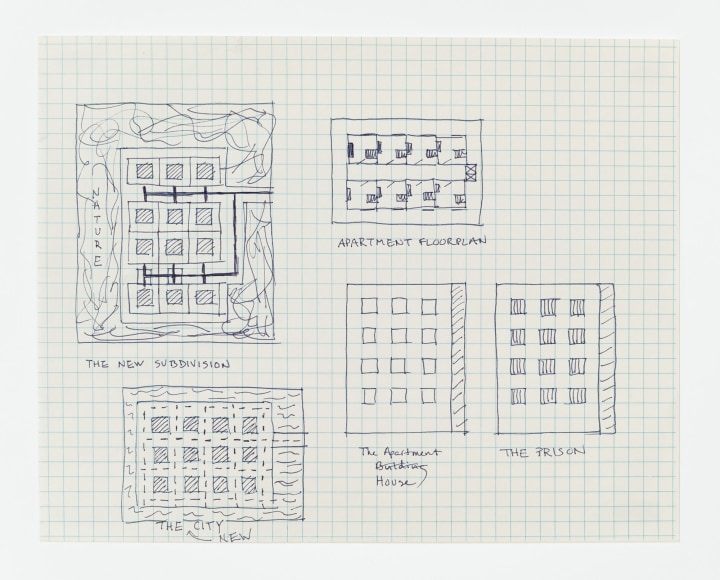 NATURE
THE NEW SUBDIVISION
APARTMENT FLOORPLAN
The Apartment
Building
House
THE PRISON
THE CITY
NEW